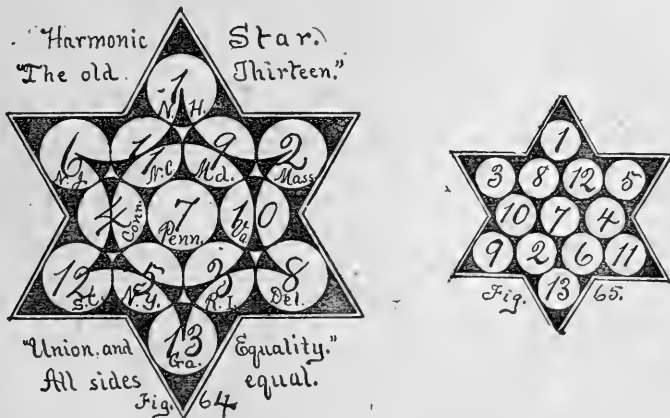 "Harmonic Star."
"The old Thirteen."
1
N. H.
6 11 9 2
N.J. N.C. Md. Mass
4 7 10
Conn. Penn. Va.
12 5 3 8
S.C. N.Y. R.I. Del.
13
Ga.
"Union, and Equality."
All sides equal.
Fig. 64
1
3 8 12 5
10 7 4
9 2 6 11
13
Fig. 65.